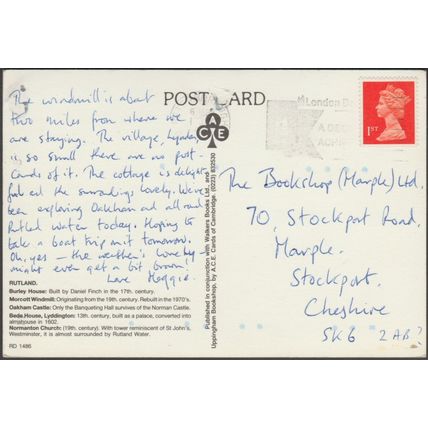 POST CARD
ACE
London
A DEC
ACHI
1ST
The windmill is about
two miles from where we
are staying. The village, Lyndon,
is, so small there are no post
cards of it. The cottage is delight
ful and the surroundings lovely. We've
been exploring Oakham and all round
Rutland water today. Hoping to
take a boat trip on it tomorrow.
Oh, yes – the weather's lovely –
might even get a bit brown!
Love Meggie.
The Bookshop (Marple) Ltd.
70, Stockport Road,
Marple.
Stockport,
Cheshire
SK6 2AB?
RUTLAND.
Burley House: Built by Daniel Finch in the 17th. century.
Morcott Windmill: Originating from the 19th. century. Rebuilt in the 1970's.
Oakham Castle: Only the Banqueting Hall survives of the Norman Castle.
Bede House, Lyddington: 13th. century, built as a palace, converted into
almshouse in 1602.
Normanton Church: (19th. century). With tower reminiscent of St John's,
Westminster, it is almost surrounded by Rutland Water.
RD 1486
Published in conjunction with Walkers Books Ltd. and
Uppingham Bookshop, by A.C.E. Cards of Cambridge. (0223) 63530